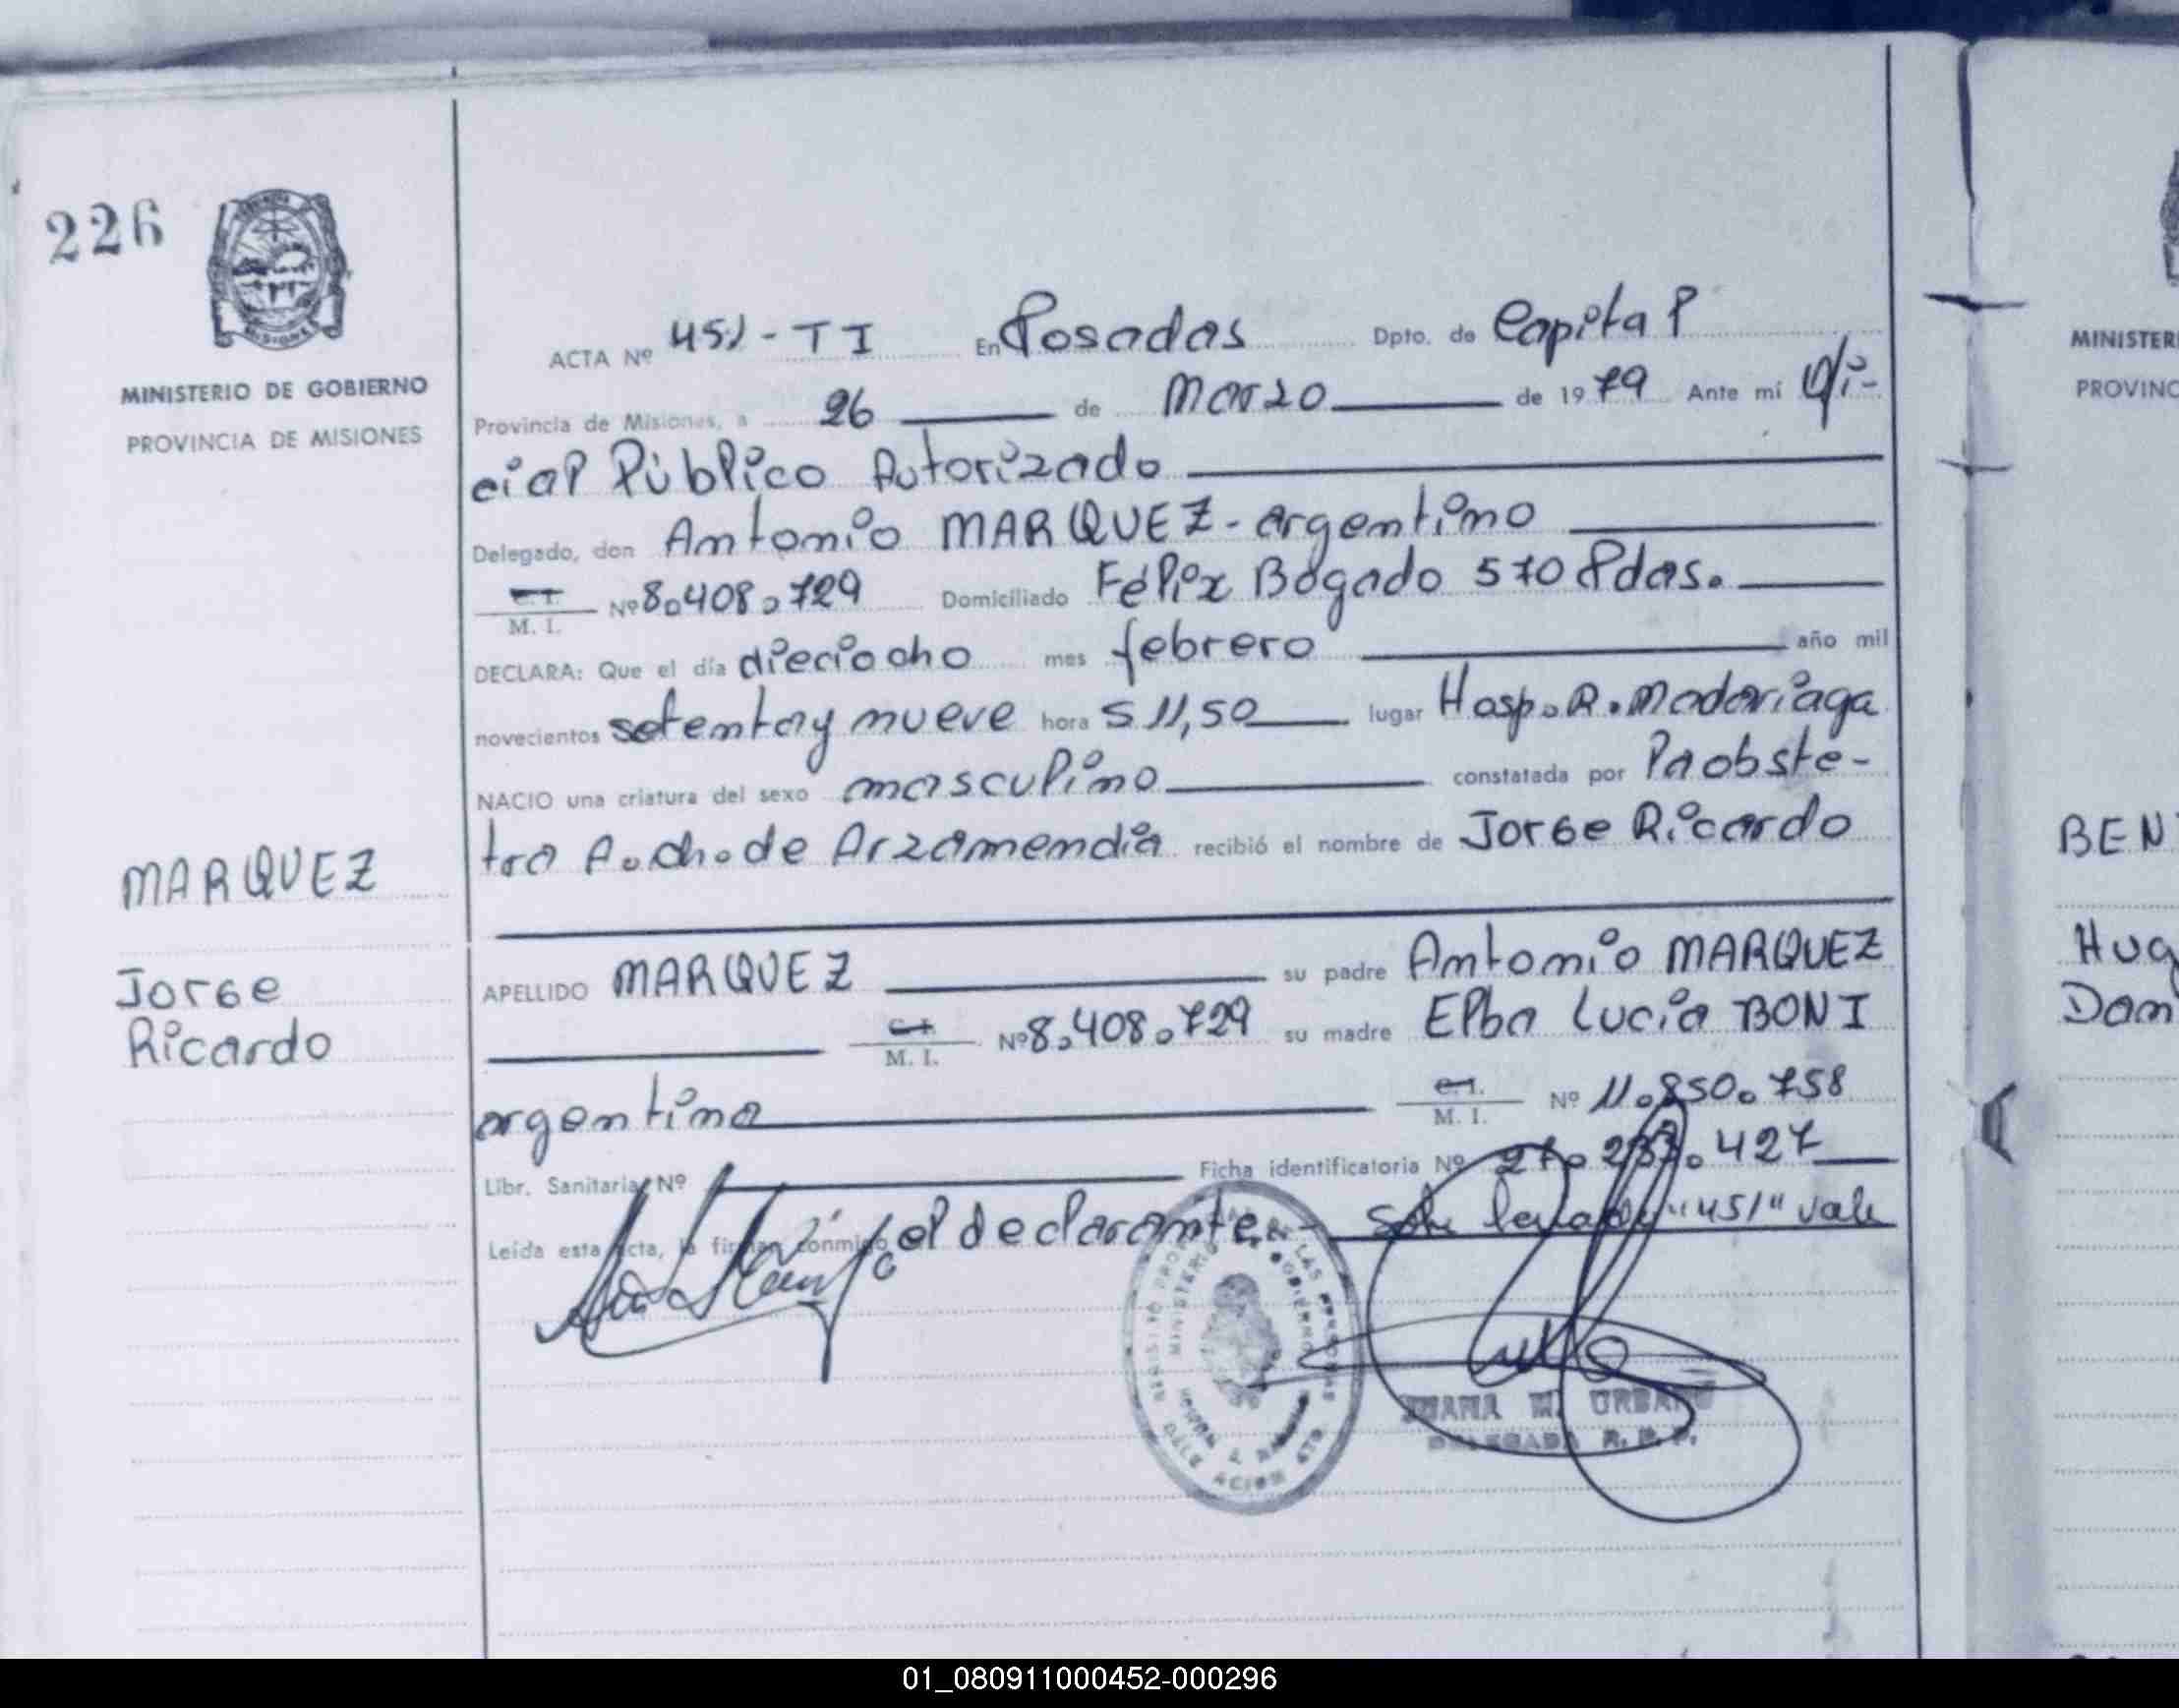 226
MINISTERIO DE GOBIERNO
PROVINCIA DE MISIONES
ACTA Nº 451-T I En Posadas Dpto. de Capital
Provincia de Misiones, a 26 de marzo de 1979 Ante mí Ofi-
cial Público Autorizado
Delegado, don Antonio MARQUEZ - argentino
C. I. M. I. Nº 8.408.729 Domiciliado Félix Bogado 570 Pdas.
DECLARA: Que el día dieciocho mes febrero año mil
novecientos setenta y nueve hora S 11,50 lugar Hosp. R. Madariaga
NACIO una criatura del sexo masculino constatada por la obste-
tra A. Ch. de Arzamendia recibió el nombre de Jorge Ricardo
MARQUEZ
Jorge
Ricardo
APELLIDO MARQUEZ su padre Antonio MARQUEZ
C. I. M. I. Nº 8.408.729 su madre Elba Lucia BONI
argentina C. I. M. I. Nº 11.850.758
Libr. Sanitaria Nº Ficha identificatoria Nº 27.233.427
Leída esta acta, la firman conmigo el declarante.- Sobre "451" vale
REGISTRO PROVINCIAL DE LAS PERSONAS
MINISTERIO GOBIERNO
JUANA M. URBANO
DELEGADA R. P. P.
MINISTER
PROVINC
BEN
Hug
Dan
01_080911000452-000296